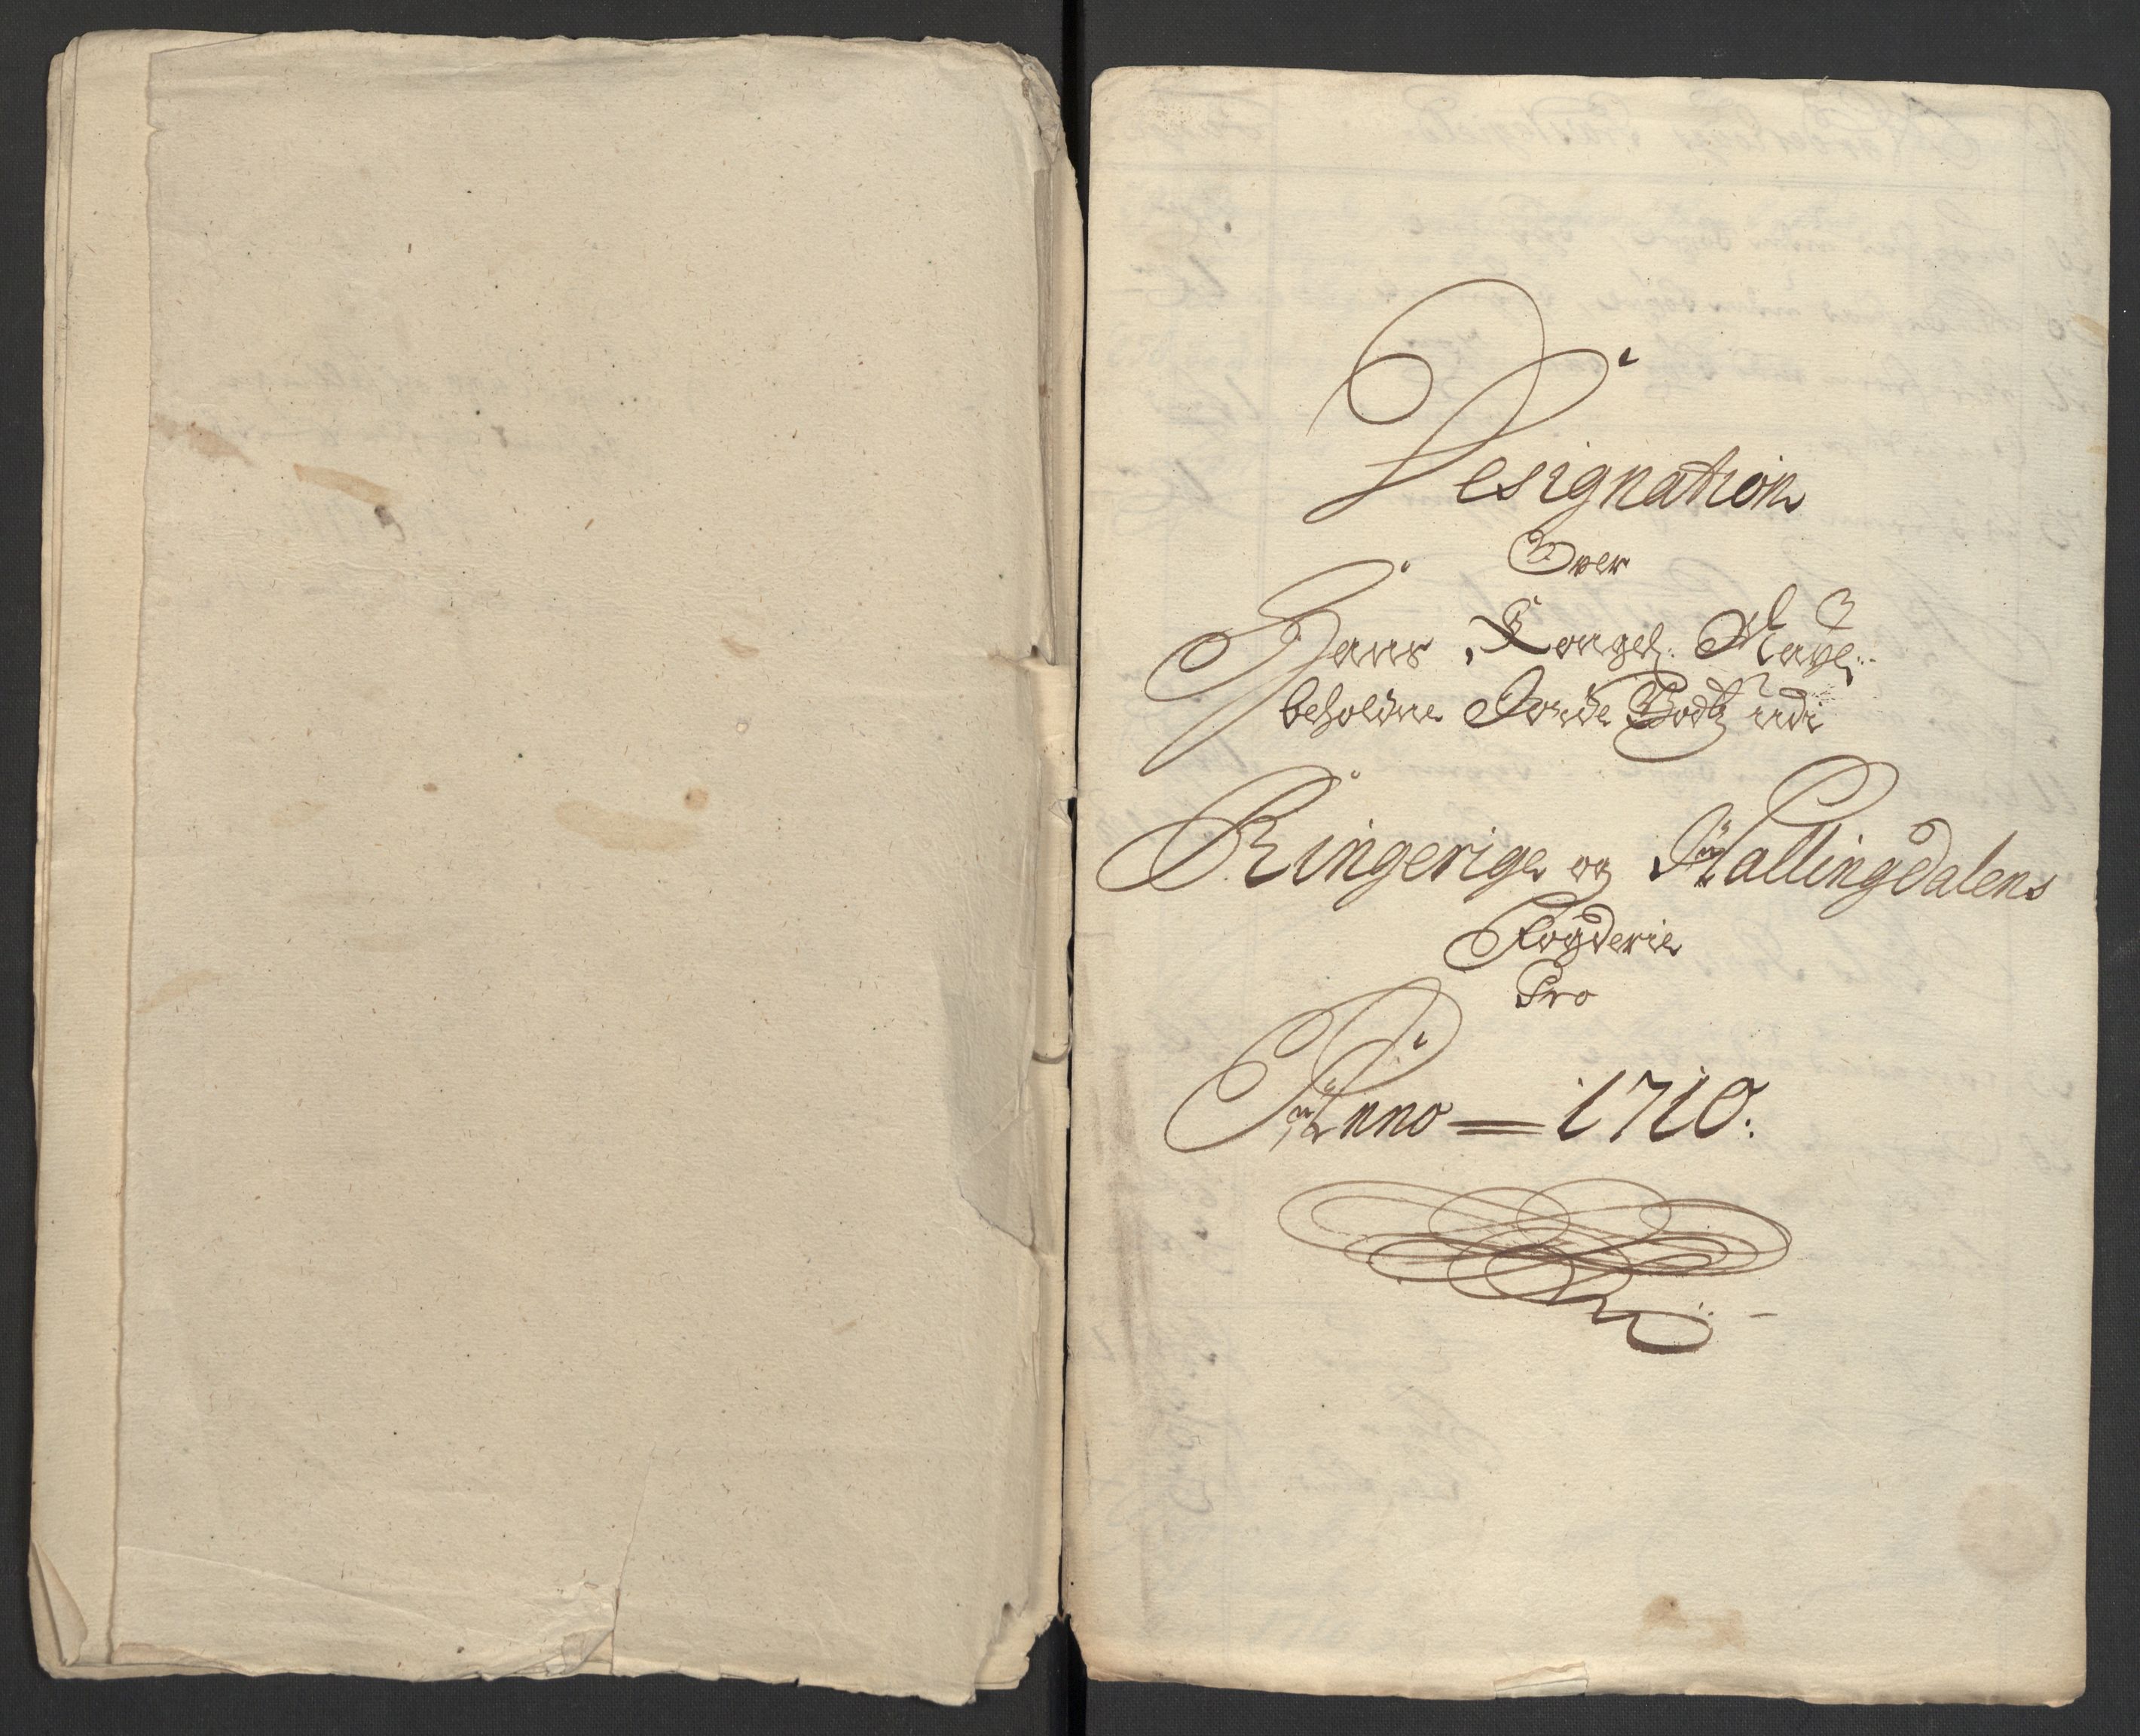 Designation
Over
Hans Kongel: Mayt:
beholdne Jorde Godtz udi
Ringerige og Hallingdalens
Fogderie
Pro
Anno = 1710.